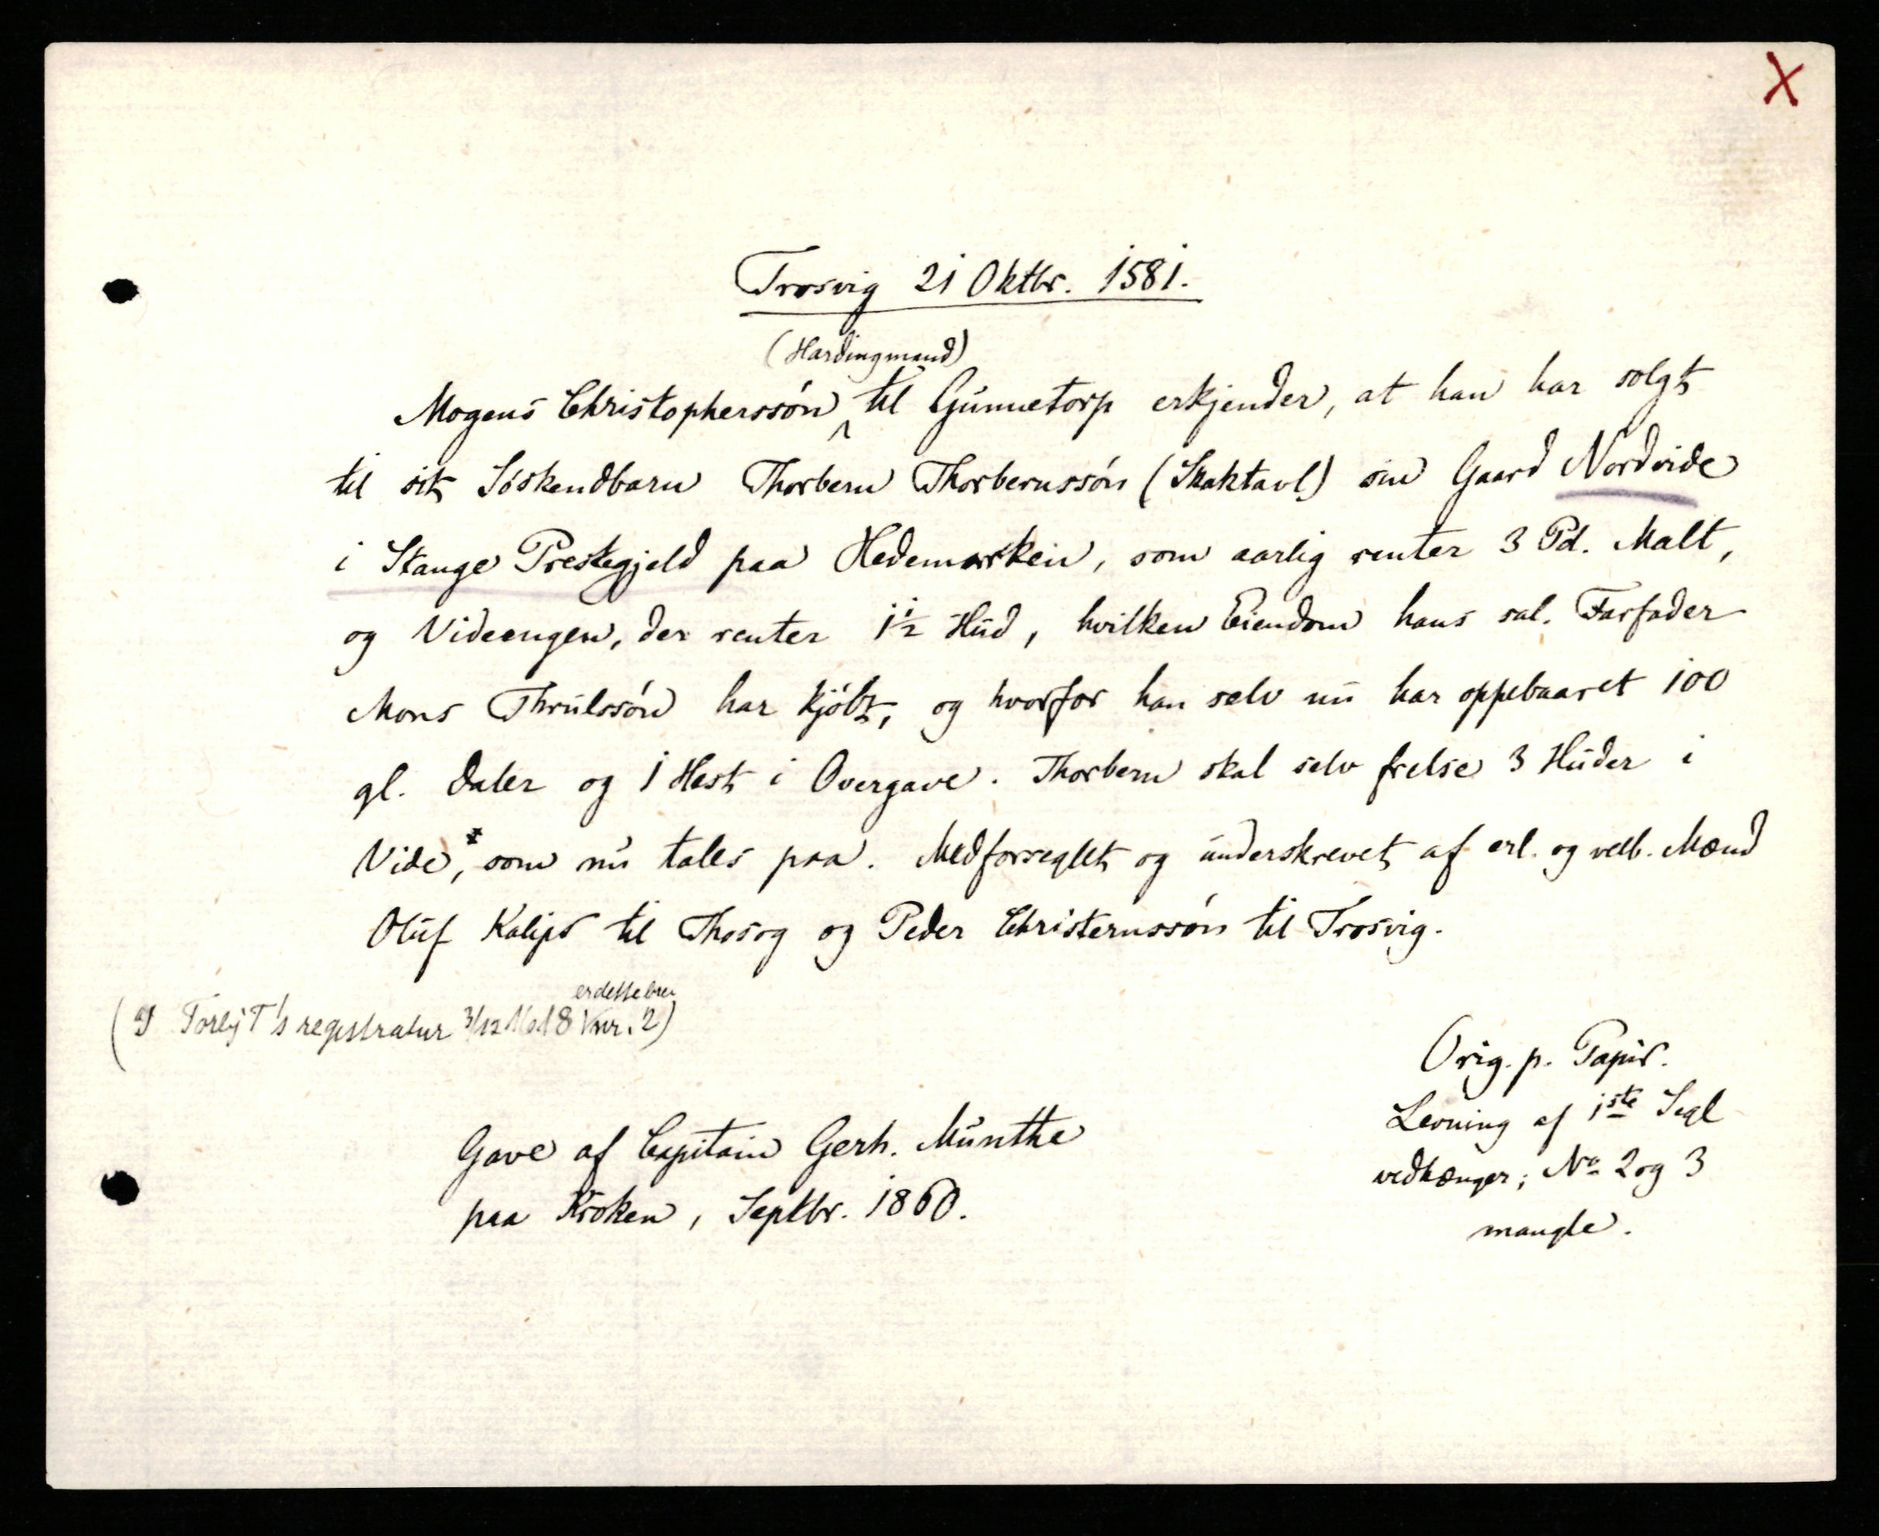 X
Trosvig 21 Oktbr. 1581.
(Hardingmand)
Mogens Christopherssön til Gunnetorp erkjender, at han har solgt
til sit Söskendbarn Thorbern Thorbernssön (Skaktavl) sin Gaard Nordvide
i Stange Prestegjeld paa Hedemarken, som aarlig renter 3 Pd. Malt,
og Videengen, der renter 1½ Hud, hvilken Eiendom hans sal. Farfader
Mons Thrulssön har kjöbt, og hvorfor han selv nu har oppebaaret 100
gl. Daler og 1 Hest i Overgave. Thorbern skal selv frelse 3 Huder i
Vide, som nu tales paa. Medforseglet og underskrevet af erl. og velb. Mænd
Oluf Kalips til Thosog og Peder Christernssön til Trosvig.
er dette brev
(I registratur 3/12 1618 nr. 2)
Orig. p. Papir.
Levning af 1ste Segl
vedhænger; No 2 og 3
mangle.
Gave af Capitain Gerh. Munthe
paa Kroken, Septbr. 1860.